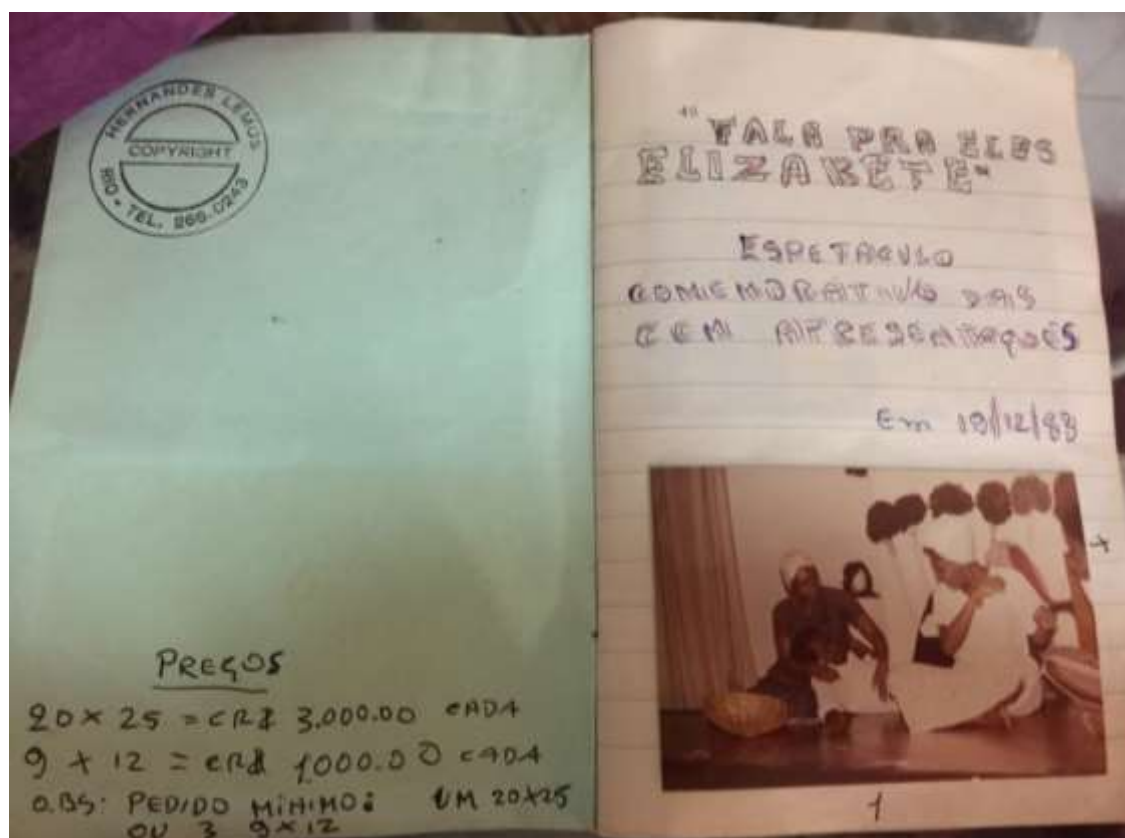 HERNANDER LEMOS
COPYRIGHT
RIO - TEL. 266-0243
PREÇOS
20 x 25 = CR$ 3.000.00 CADA
9 x 12 = CR$ 1000.00 CADA
OBS: PEDIDO MÍNIMO: UM 20x25
OU 3 9x12
"FALA PRA ELES
ELIZABETE"
ESPETÁCULO
COMEMORATIVO DAS
CEM APRESENTAÇÕES
Em 19/12/83
1